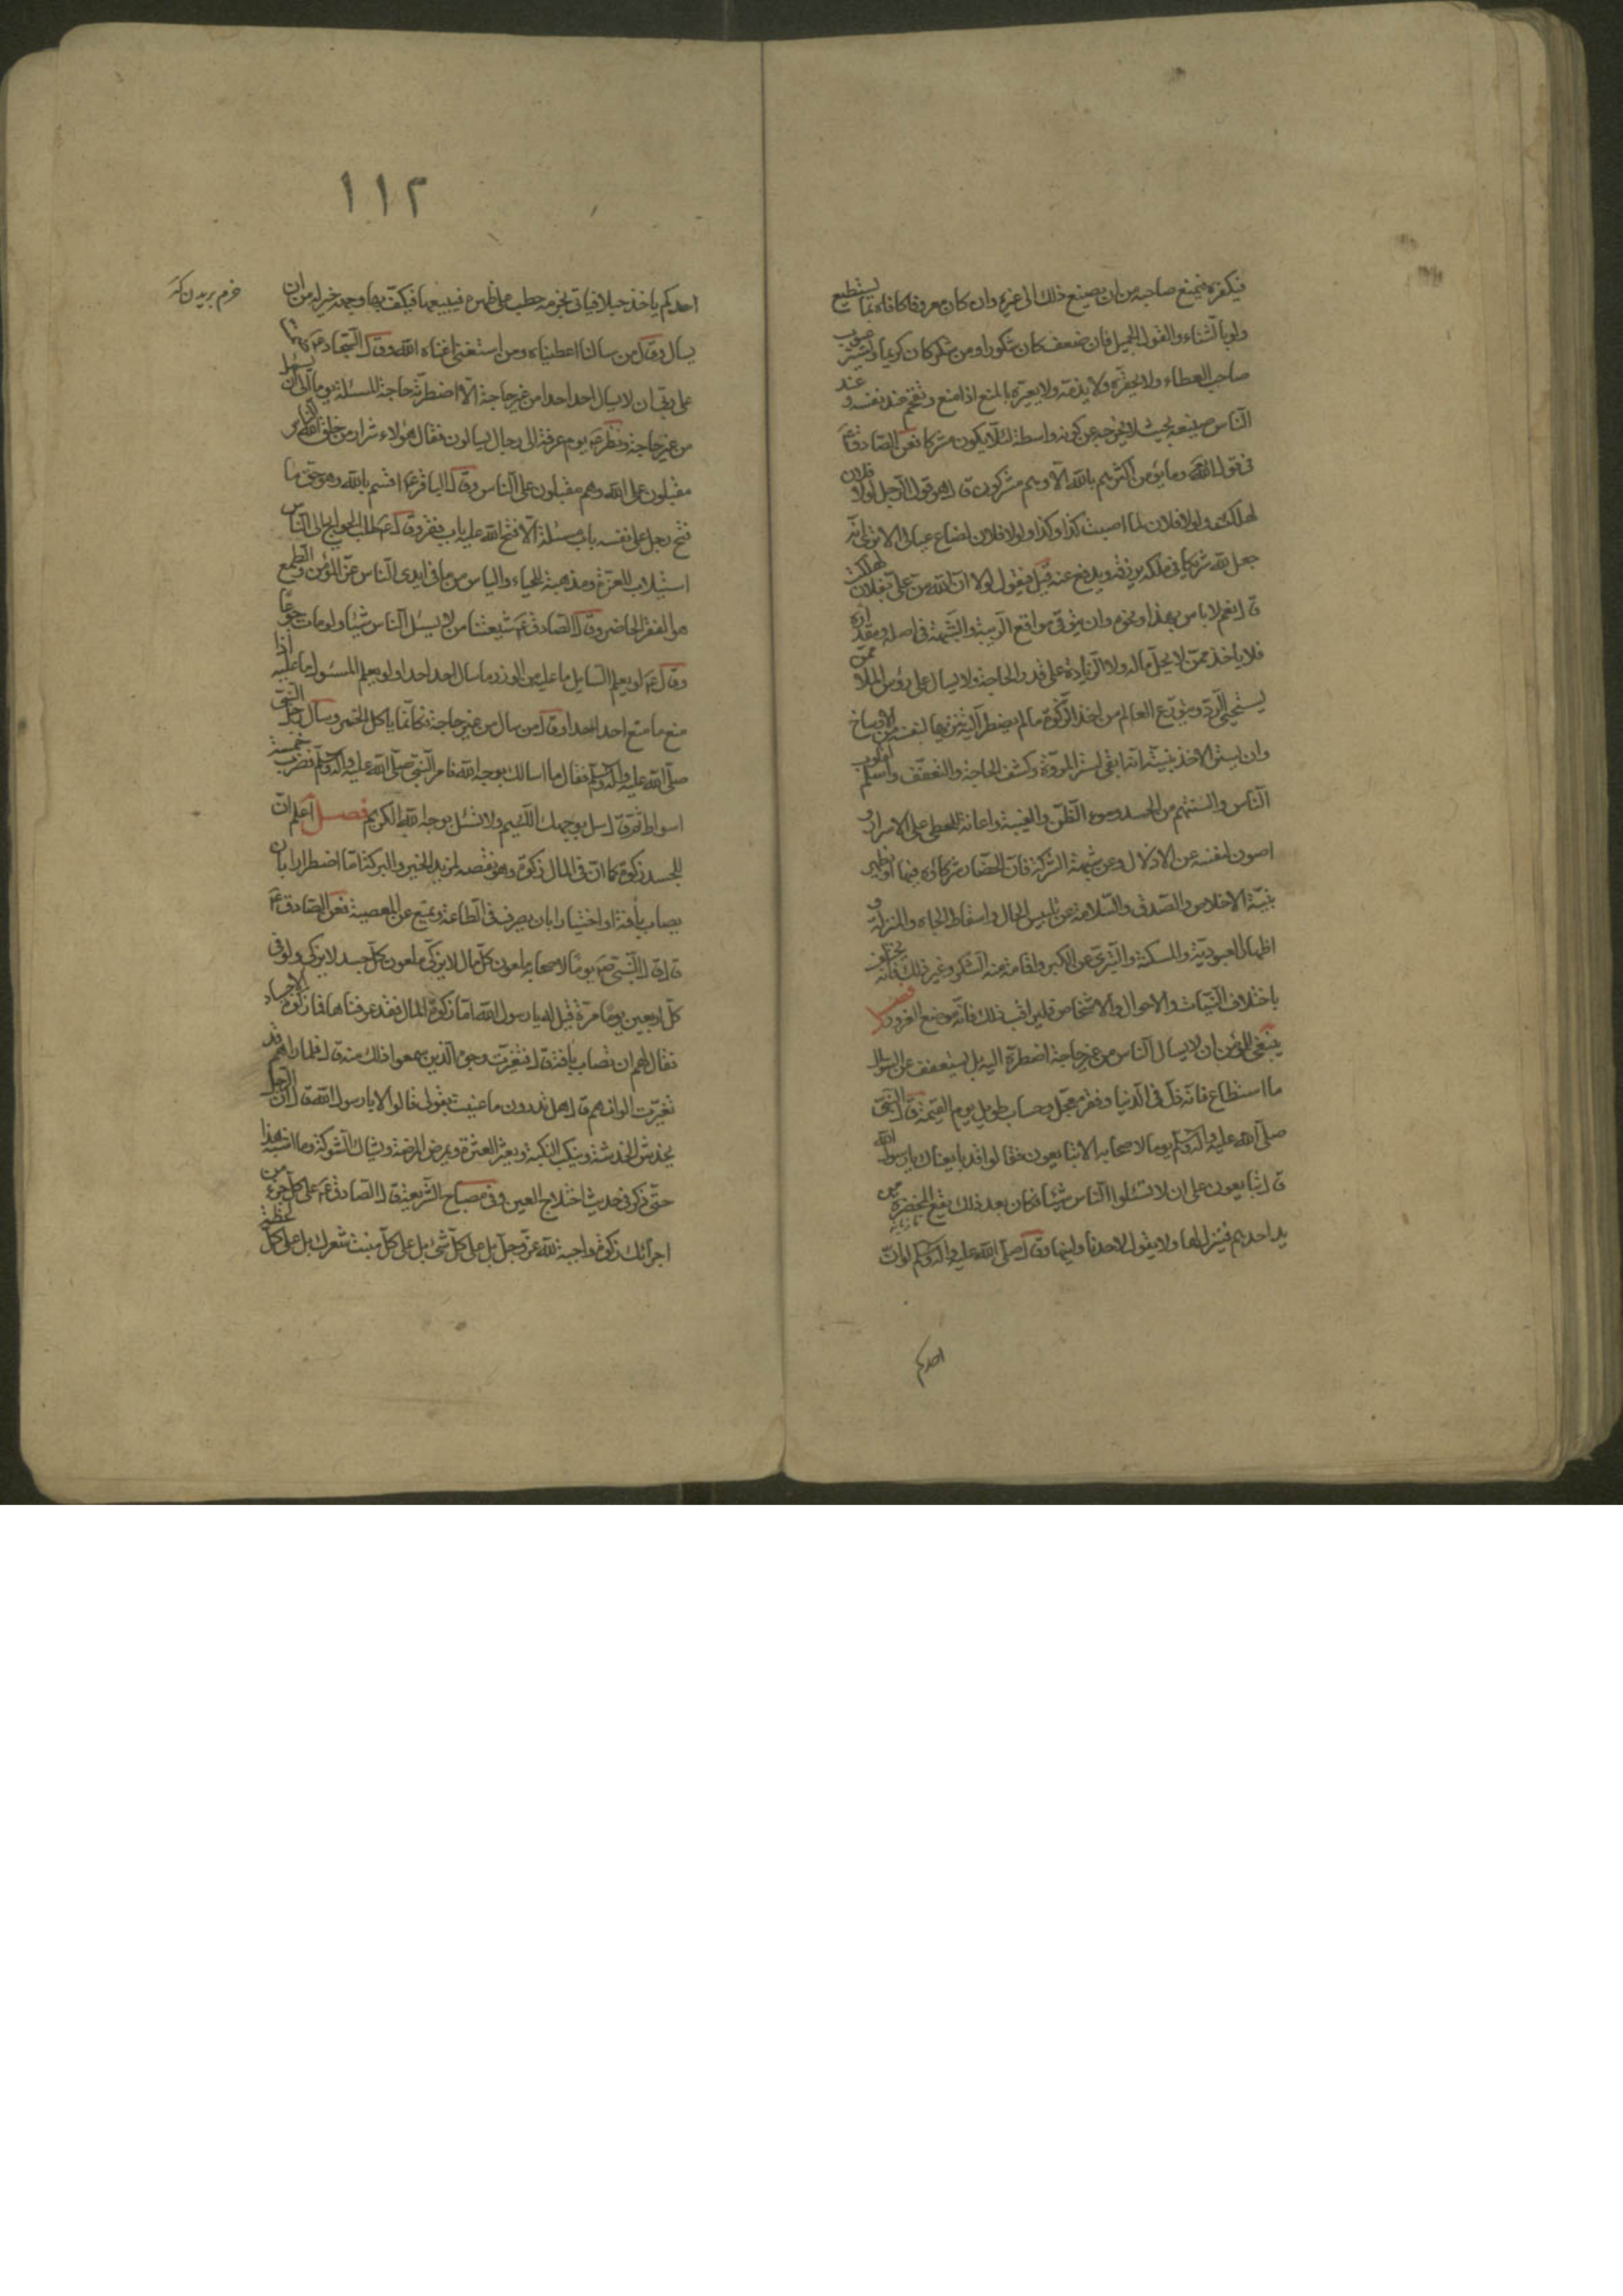 فيكفره فيمتنع صاحبه من ان يصنع ذلك الى غيره وان كان معروفا كافاه بما يستطيع
ولو بالثناء والقول الجميل فان ضعف كان شكورا ومن شكر كان كريما ويستر عيوب
صاحب العطاء ولا يحقره ولا يذمه ولا يعيره بالمنع اذا منع ويفخم عند نفسه وعند
الناس صنيعه بحيث لا يخرجه عن كونه واسطة لئلا يكون مشركا فعن الصادق ع
فى قول الله وما يؤمن اكثرهم بالله الا وهم مشركون ق ل هو قول الرجل لولا فلان
لهلكت ولولا فلان لما اصبت كذا وكذا ولولا فلان لضاع عيالى الا ترى انه
جعل لله شريكا فى ملكه يرزقه ويدفع عنه قيل فيقول لولا ان الله من على بفلان لهلكت
ق ل نعم لا باس بهذا ونحوه وان يتوقى مواقع الريبة والشبهة فى اصله ومقداره
فلا ياخذ ممن لا يحل ماله ولا الزيادة على قدر الحاجة ولا يسال على رؤس الملا ممن
يستحيى الرد ويتورع العالم من اخذ الزكوة ما لم يضطر اليه تنزيها لنفسه من الاوساخ
وان يستر الاخذ بنية انه ابقى لستر المروة وكشف الحاجة والتعفف واسلم لقلوب
الناس والسنتهم من الحسد وسوء الظن والغيبة واعانة للمعطى على الاسرار و
اصون لنفسه عن الاذلال وعن شبهة الشركة فان الحضار شركاؤه فيها او يظهر
بنية الاخلاص والصدق والسلامة عن تلبيس الحال واسقاط الجاه والمنزلة و
اظهار العبودية والمسكنة والتبرى عن الكبر واقامة سنة الشكر وغير ذلك فانه يختلف
باختلاف النيات والاحوال والاشخاص فليراقب ذلك فانه موضع الغرور فصل
ينبغى للمؤمن ان لا يسال الناس من غير حاجة اضطرته اليه بل يستعفف عن السؤال
ما استطاع فانه ذل فى الدنيا وفقر معجل وحساب طويل يوم القيمة ق ل النبى
صلى الله عليه واله وسلم يوما لاصحابه الا تبايعون فقالوا قد بايعناك يا رسول الله
ق ل تبايعون على ان لا تسئلوا الناس شيئا فكان بعد ذلك تقع المخصرة من
يد احدهم فينزل لها ولا يقول لاحد ناولنيها وق ل صلى الله عليه واله وسلم لو ان
احدكم
١١٢
احدكم ياخذ حبلا فياتى بحزمة حطب على ظهره فيبيعها فيكف بها وجهه خير له من ان
يسال وق ل من سالنا اعطيناه ومن استغنى اغناه الله وق ل السجاد ع ضمنت
على ربى ان لا يسال احد احدا من غير حاجة الا اضطرته حاجة المسئلة يوما الى ان يسال
من غير حاجة ونظر ع يوم عرفة الى رجال يسالون فقال هؤلاء شرار من خلق الله الناس
مقبلون على الله وهم مقبلون على الناس وق ل الباقر ع اقسم بالله وهو حق ما
فتح رجل على نفسه باب مسئلة الا فتح الله عليه باب فقر وق ل ع طلب الحوايج الى الناس
استيلاب للعزة ومذهبة للحياء والياس من ما فى ايدى الناس عز المؤمن والطمع
هو الفقر الحاضر وق ل الصادق ع شيعتنا من لا يسئل الناس شيئا ولو مات جوعا
وق ل ع لو يعلم السايل ما عليه من الوزر ما سال احد احدا ولو يعلم المسئول ما عليه اذا
منع ما منع احد احدا وق ل من سال من غير حاجة فكانما ياكل الخمر وسال رجل النبى
صلى الله عليه واله وسلم فقال ما اسالك بوجه الله فامر النبى صلى الله عليه واله وسلم فضرب خمسة
اسواط ثم ق ل سل بوجهك اللئيم ولا تسئل بوجه الله الكريم فصل اعلم ان
للجسد زكوة كما ان فى المال زكوة وهو نقصه لمزيد الخير والبركة اما اضطرارا بان
يصاب بافة او اختيارا بان يصرف فى الطاعة ويمنع عن المعصية فعن الصادق ع
ق ل ق ل النبى ص يوما لاصحابه ملعون كل مال لا يزكى ملعون كل جسد لا يزكى ولو فى
كل اربعين يوما مرة فقيل له يا رسول الله اما زكوة المال فقد عرفناها فما زكوة الاجساد
فقال لهم ان تصاب بافة ق ل فتغيرت وجوه الذين سمعوا ذلك منه ق ل فلما راهم قد
تغيرت الوانهم ق ل هل تدرون ما عنيت بقولى قالوا لا يا رسول الله ق ل ان الرجل
يخدش الخدشة وينكب النكبة ويعثر العثرة ويمرض المرضة ويشاك الشوكة وما اشبه هذا
حتى ذكر فى حديث اختلاج العين وفى مصباح الشريعة ق ل الصادق ع على كل جزء من
اجزائك زكوة واجبة لله عز وجل بل على كل شئ بل على كل منبت شعرك بل على كل لحظة
خرم بريدن